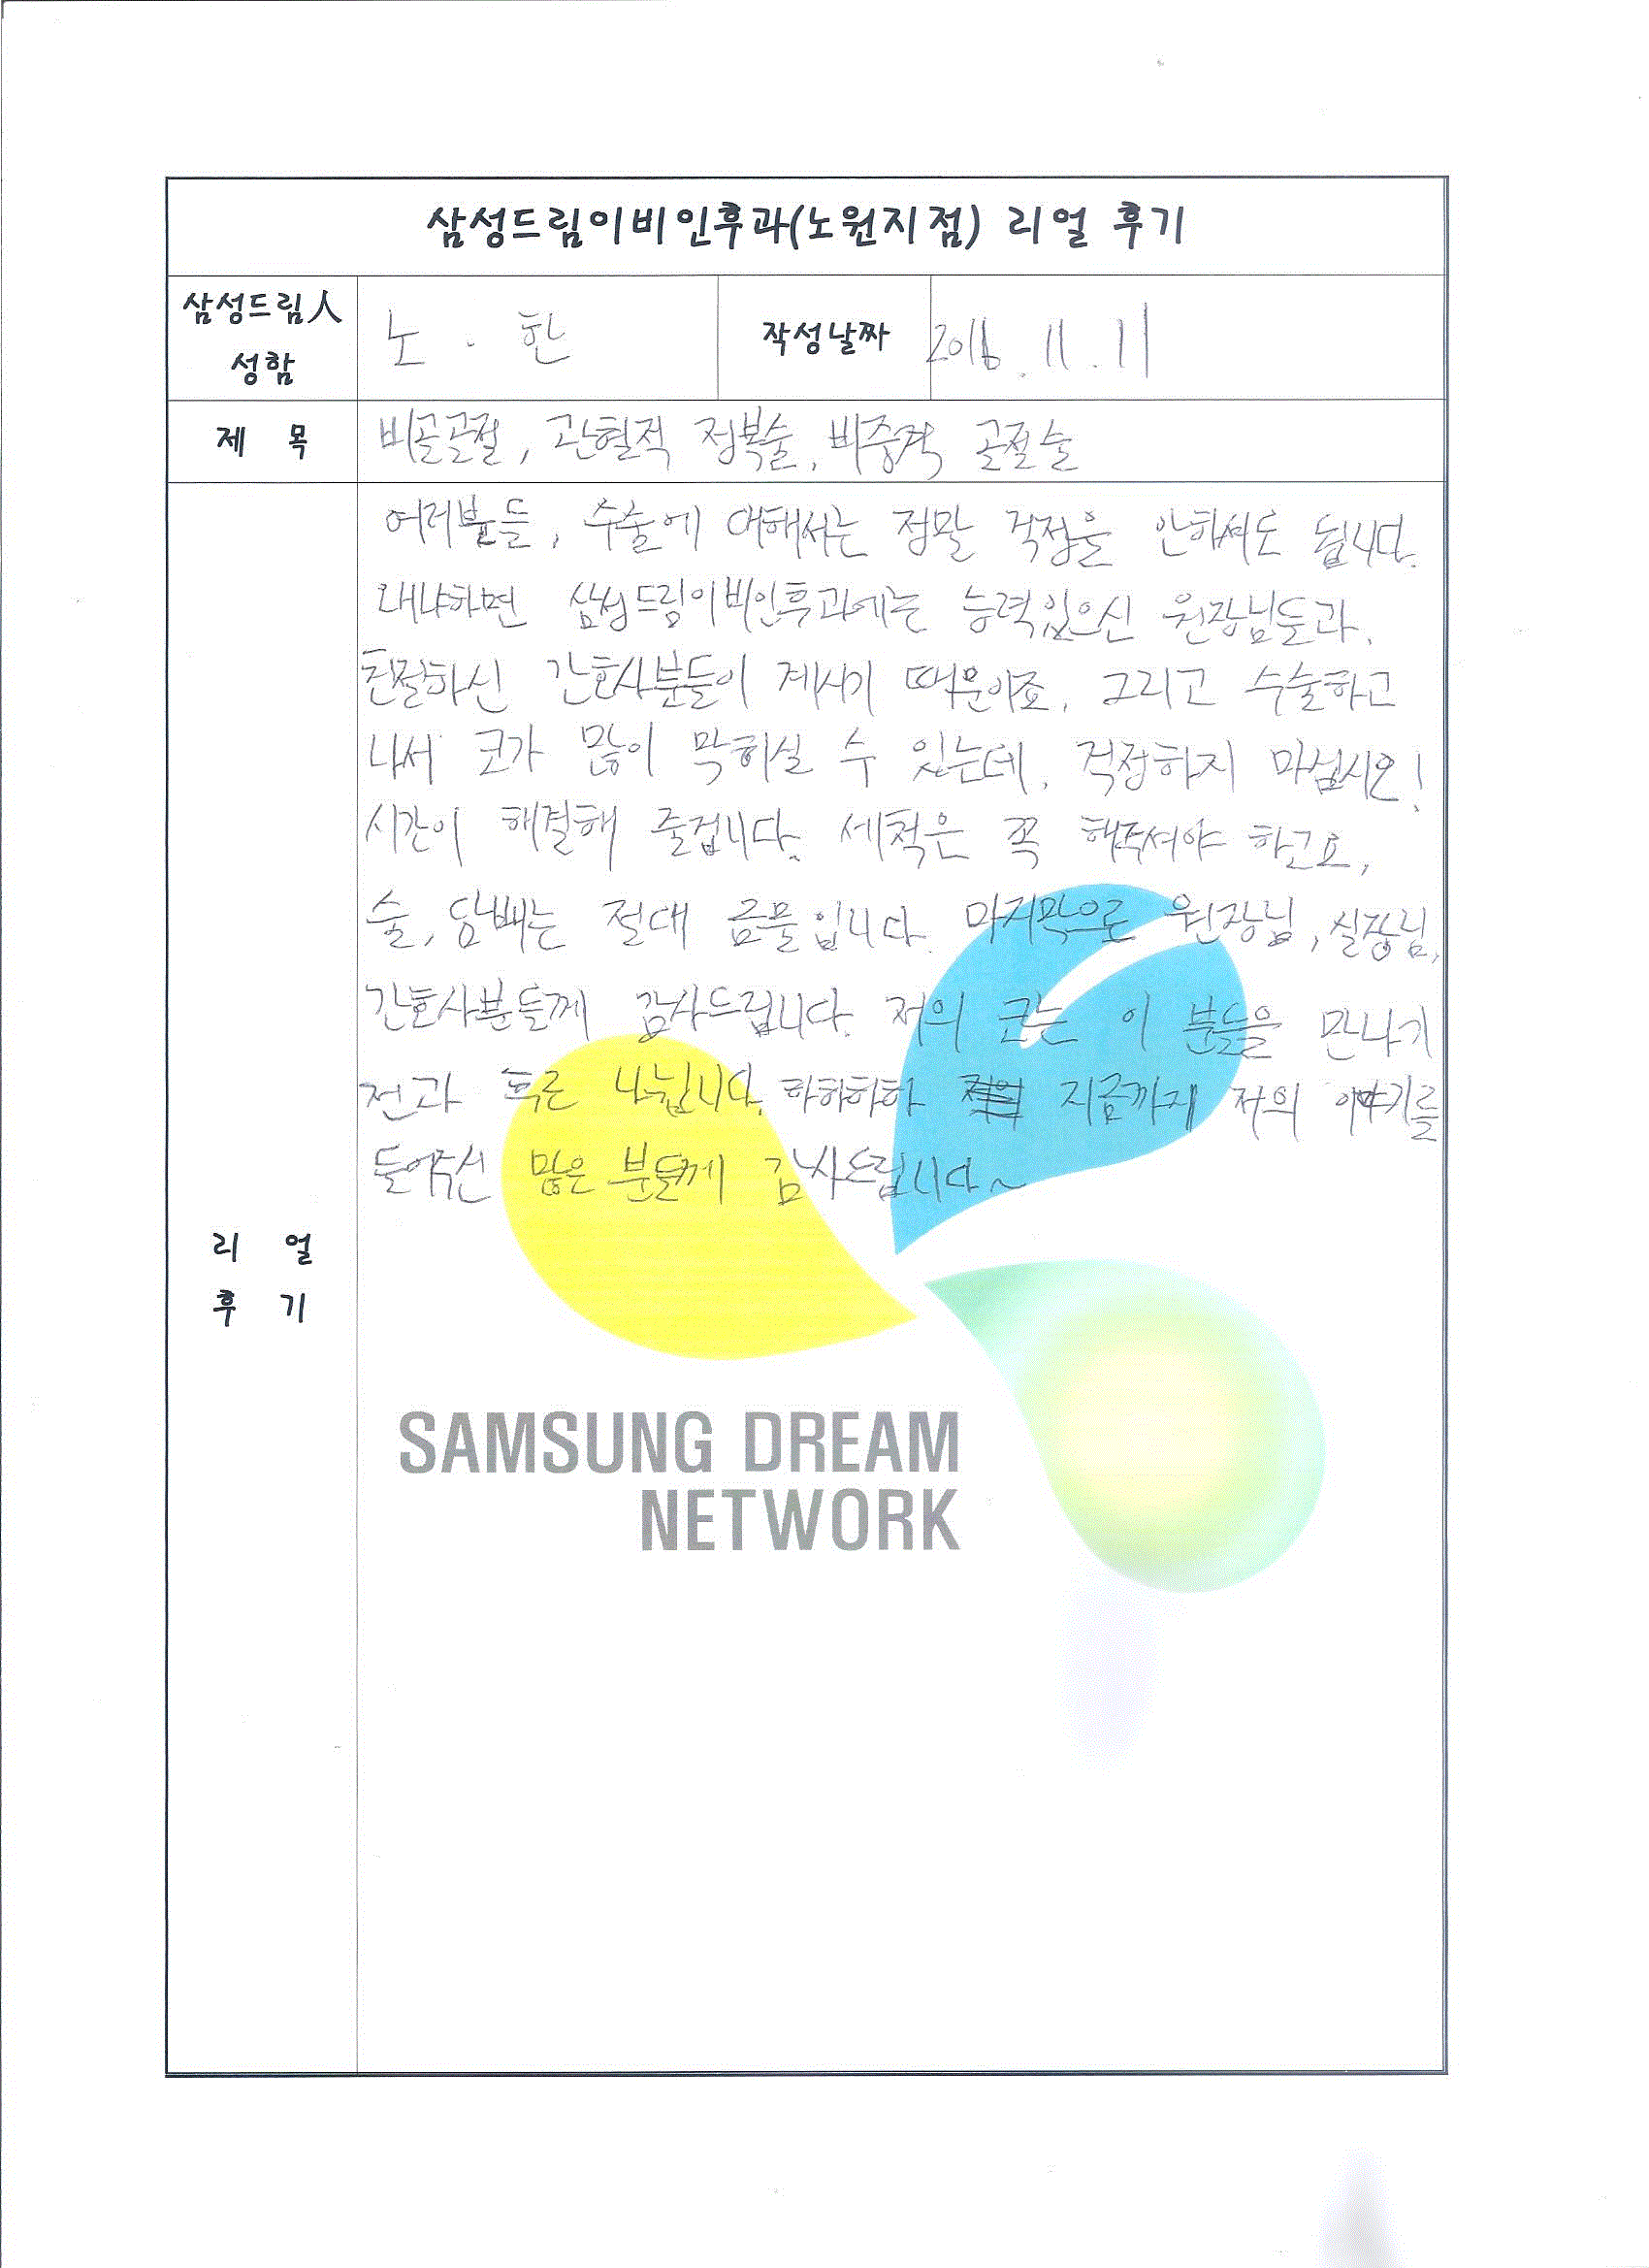 삼성드림이비인후과(노원지점) 리얼 후기
삼성드림人
성함
노 . 한
작성날짜
2016. 11. 11
제 목
비골골절, 관혈적 정복술, 비중격 골절술
여러분들, 수술에 대해서는 정말 걱정을 안하셔도 됩니다.
왜냐하면 삼성드림이비인후과에는 능력있으신 원장님들과,
친절하신 간호사분들이 계시기 때문이죠. 그리고 수술하고
나서 코가 많이 막히실 수 있는데, 걱정하지 마십시오!
시간이 해결해 줄겁니다. 세척은 꼭 해주셔야 하고요,
술, 담배는 절대 금물입니다. 마지막으로 원장님, 실장님,
간호사분들께 감사드립니다. 저의 코는 이 분들을 만나기
전과 후로 나뉩니다. 하하하하 지금까지 저의 이야기를
들어주신 많은 분들께 감사드립니다~
리 얼
후 기
SAMSUNG DREAM
NETWORK